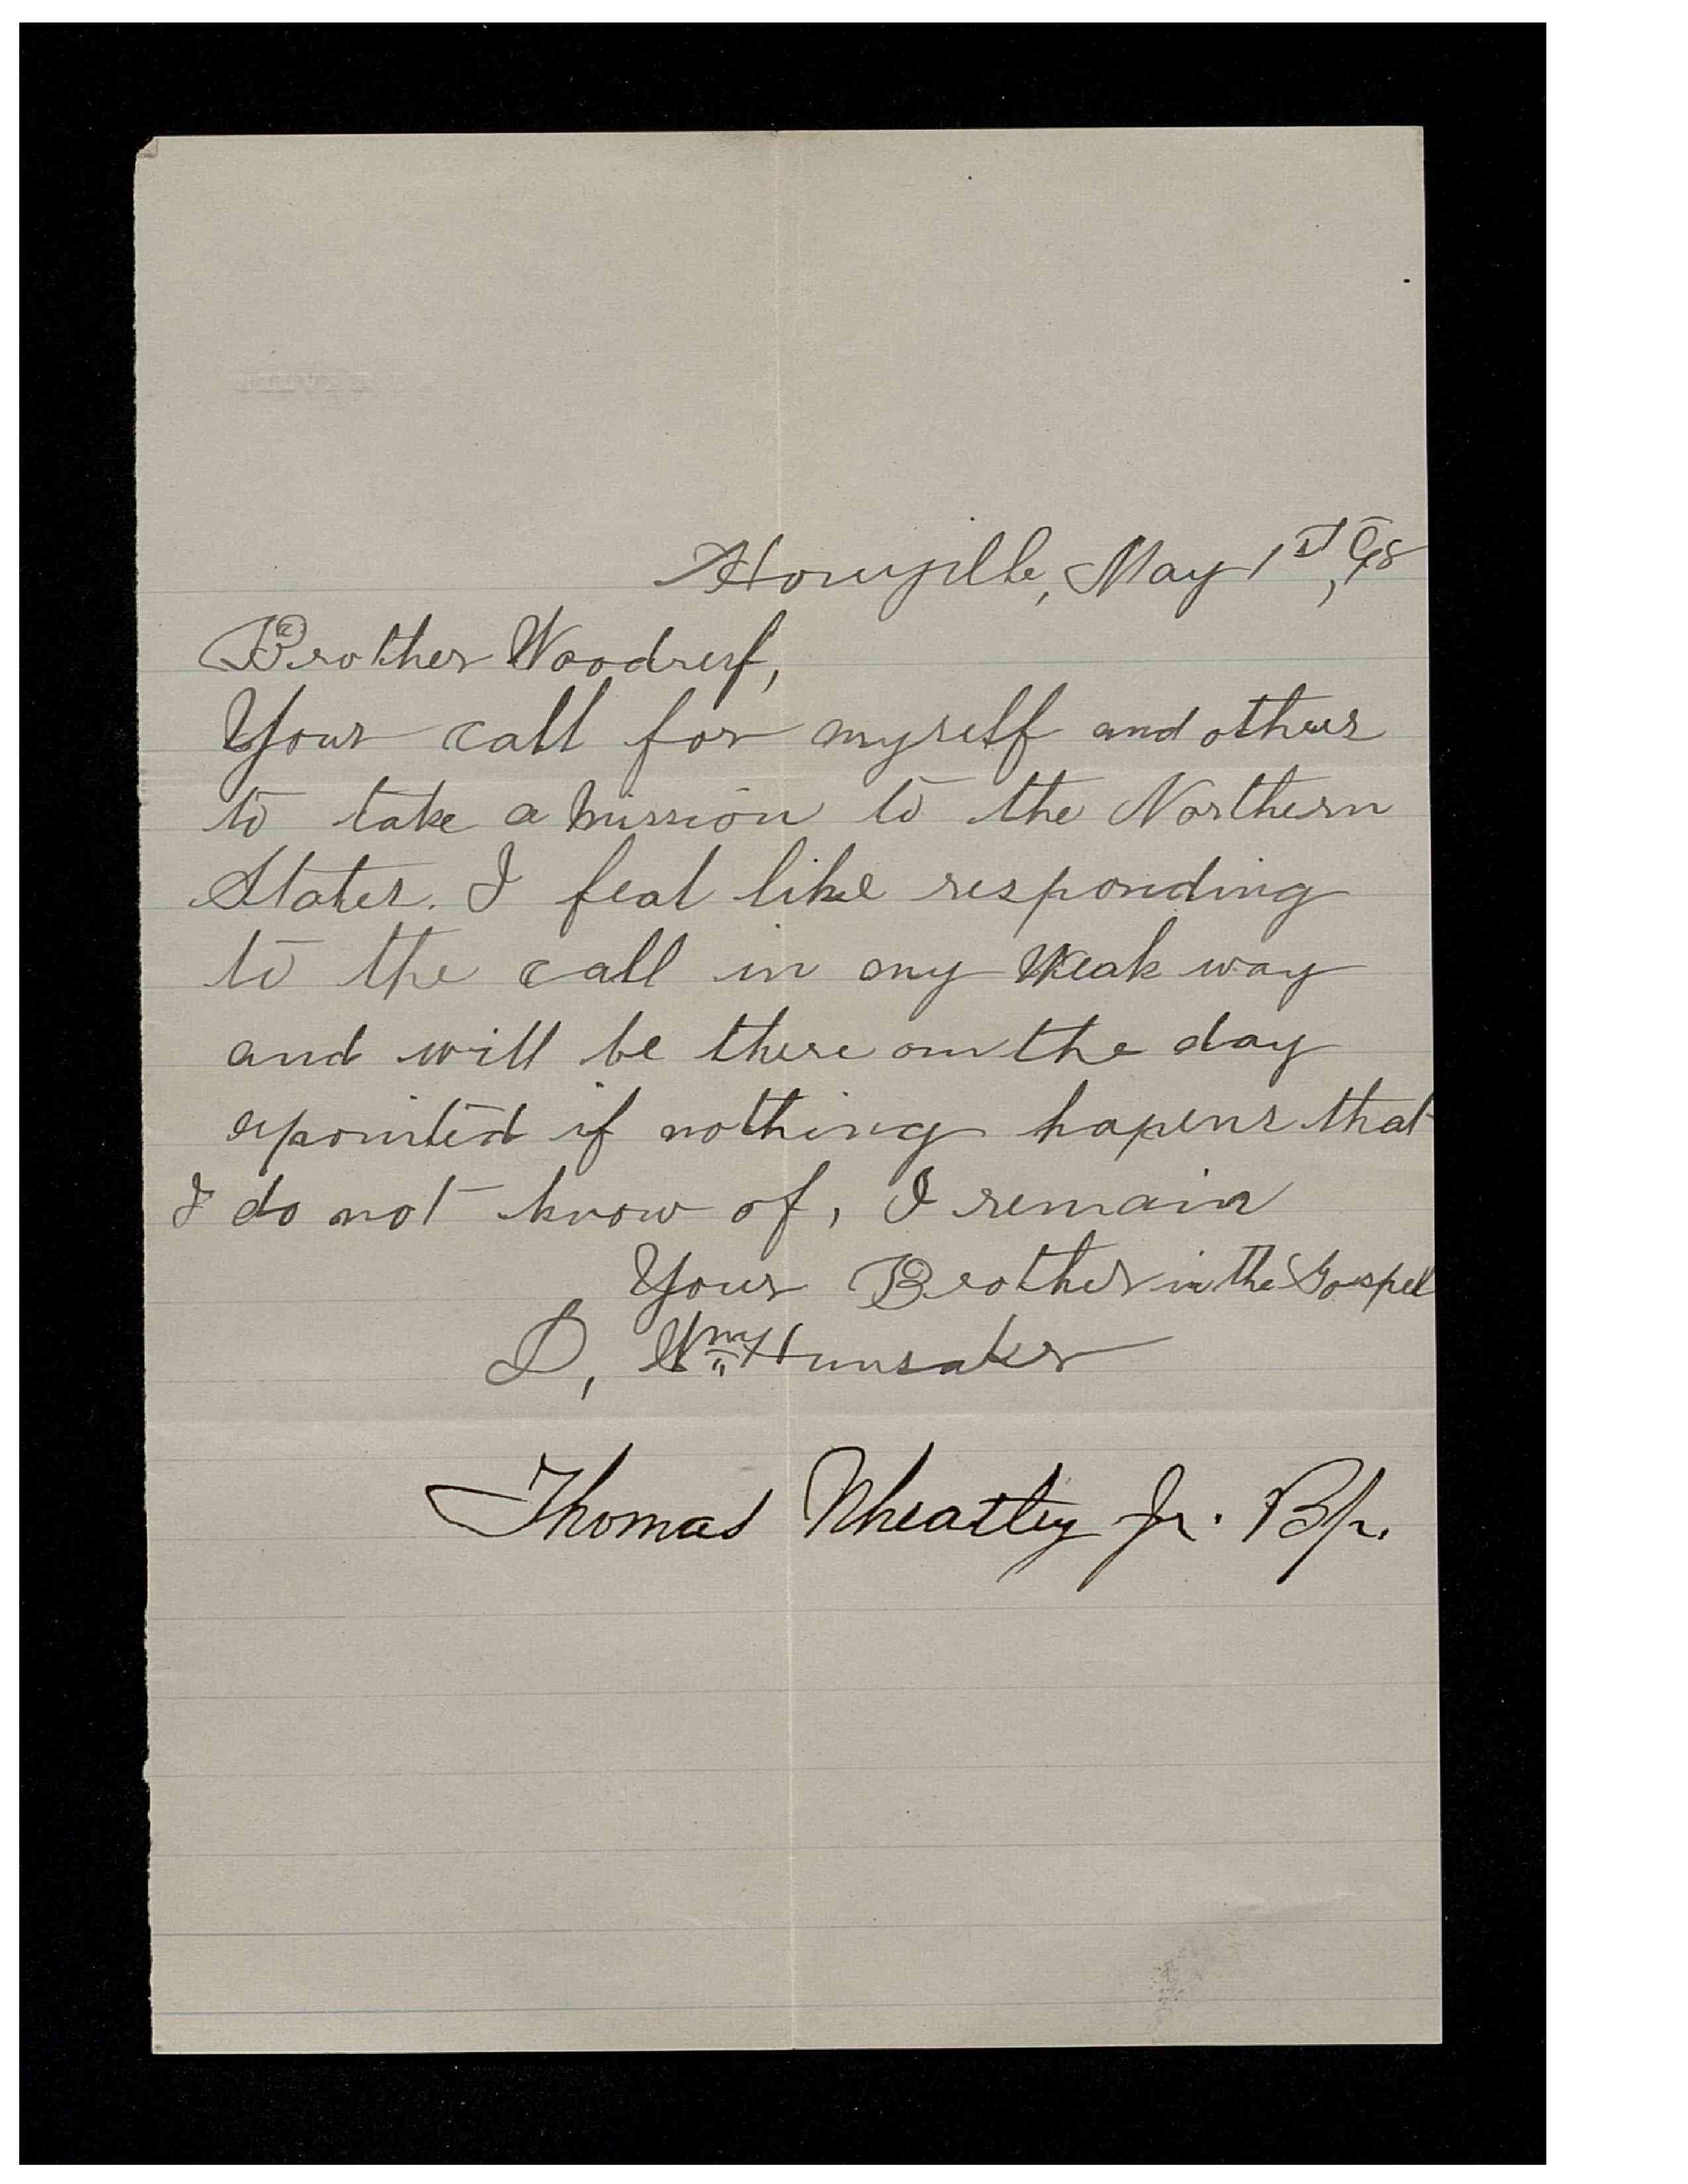 Honeyville, May 1st, 98
Brother Woodruf,
Your call for myself and others
to take a mission to the Northern
States. I feal like responding
to the call in my weak way
and will be there on the day
apointed if nothing hapens that
I do not know of, I remain
Your Brother in the Gospel
D, Wm Hunsaker
Thomas Wheatley Jr. Bp.